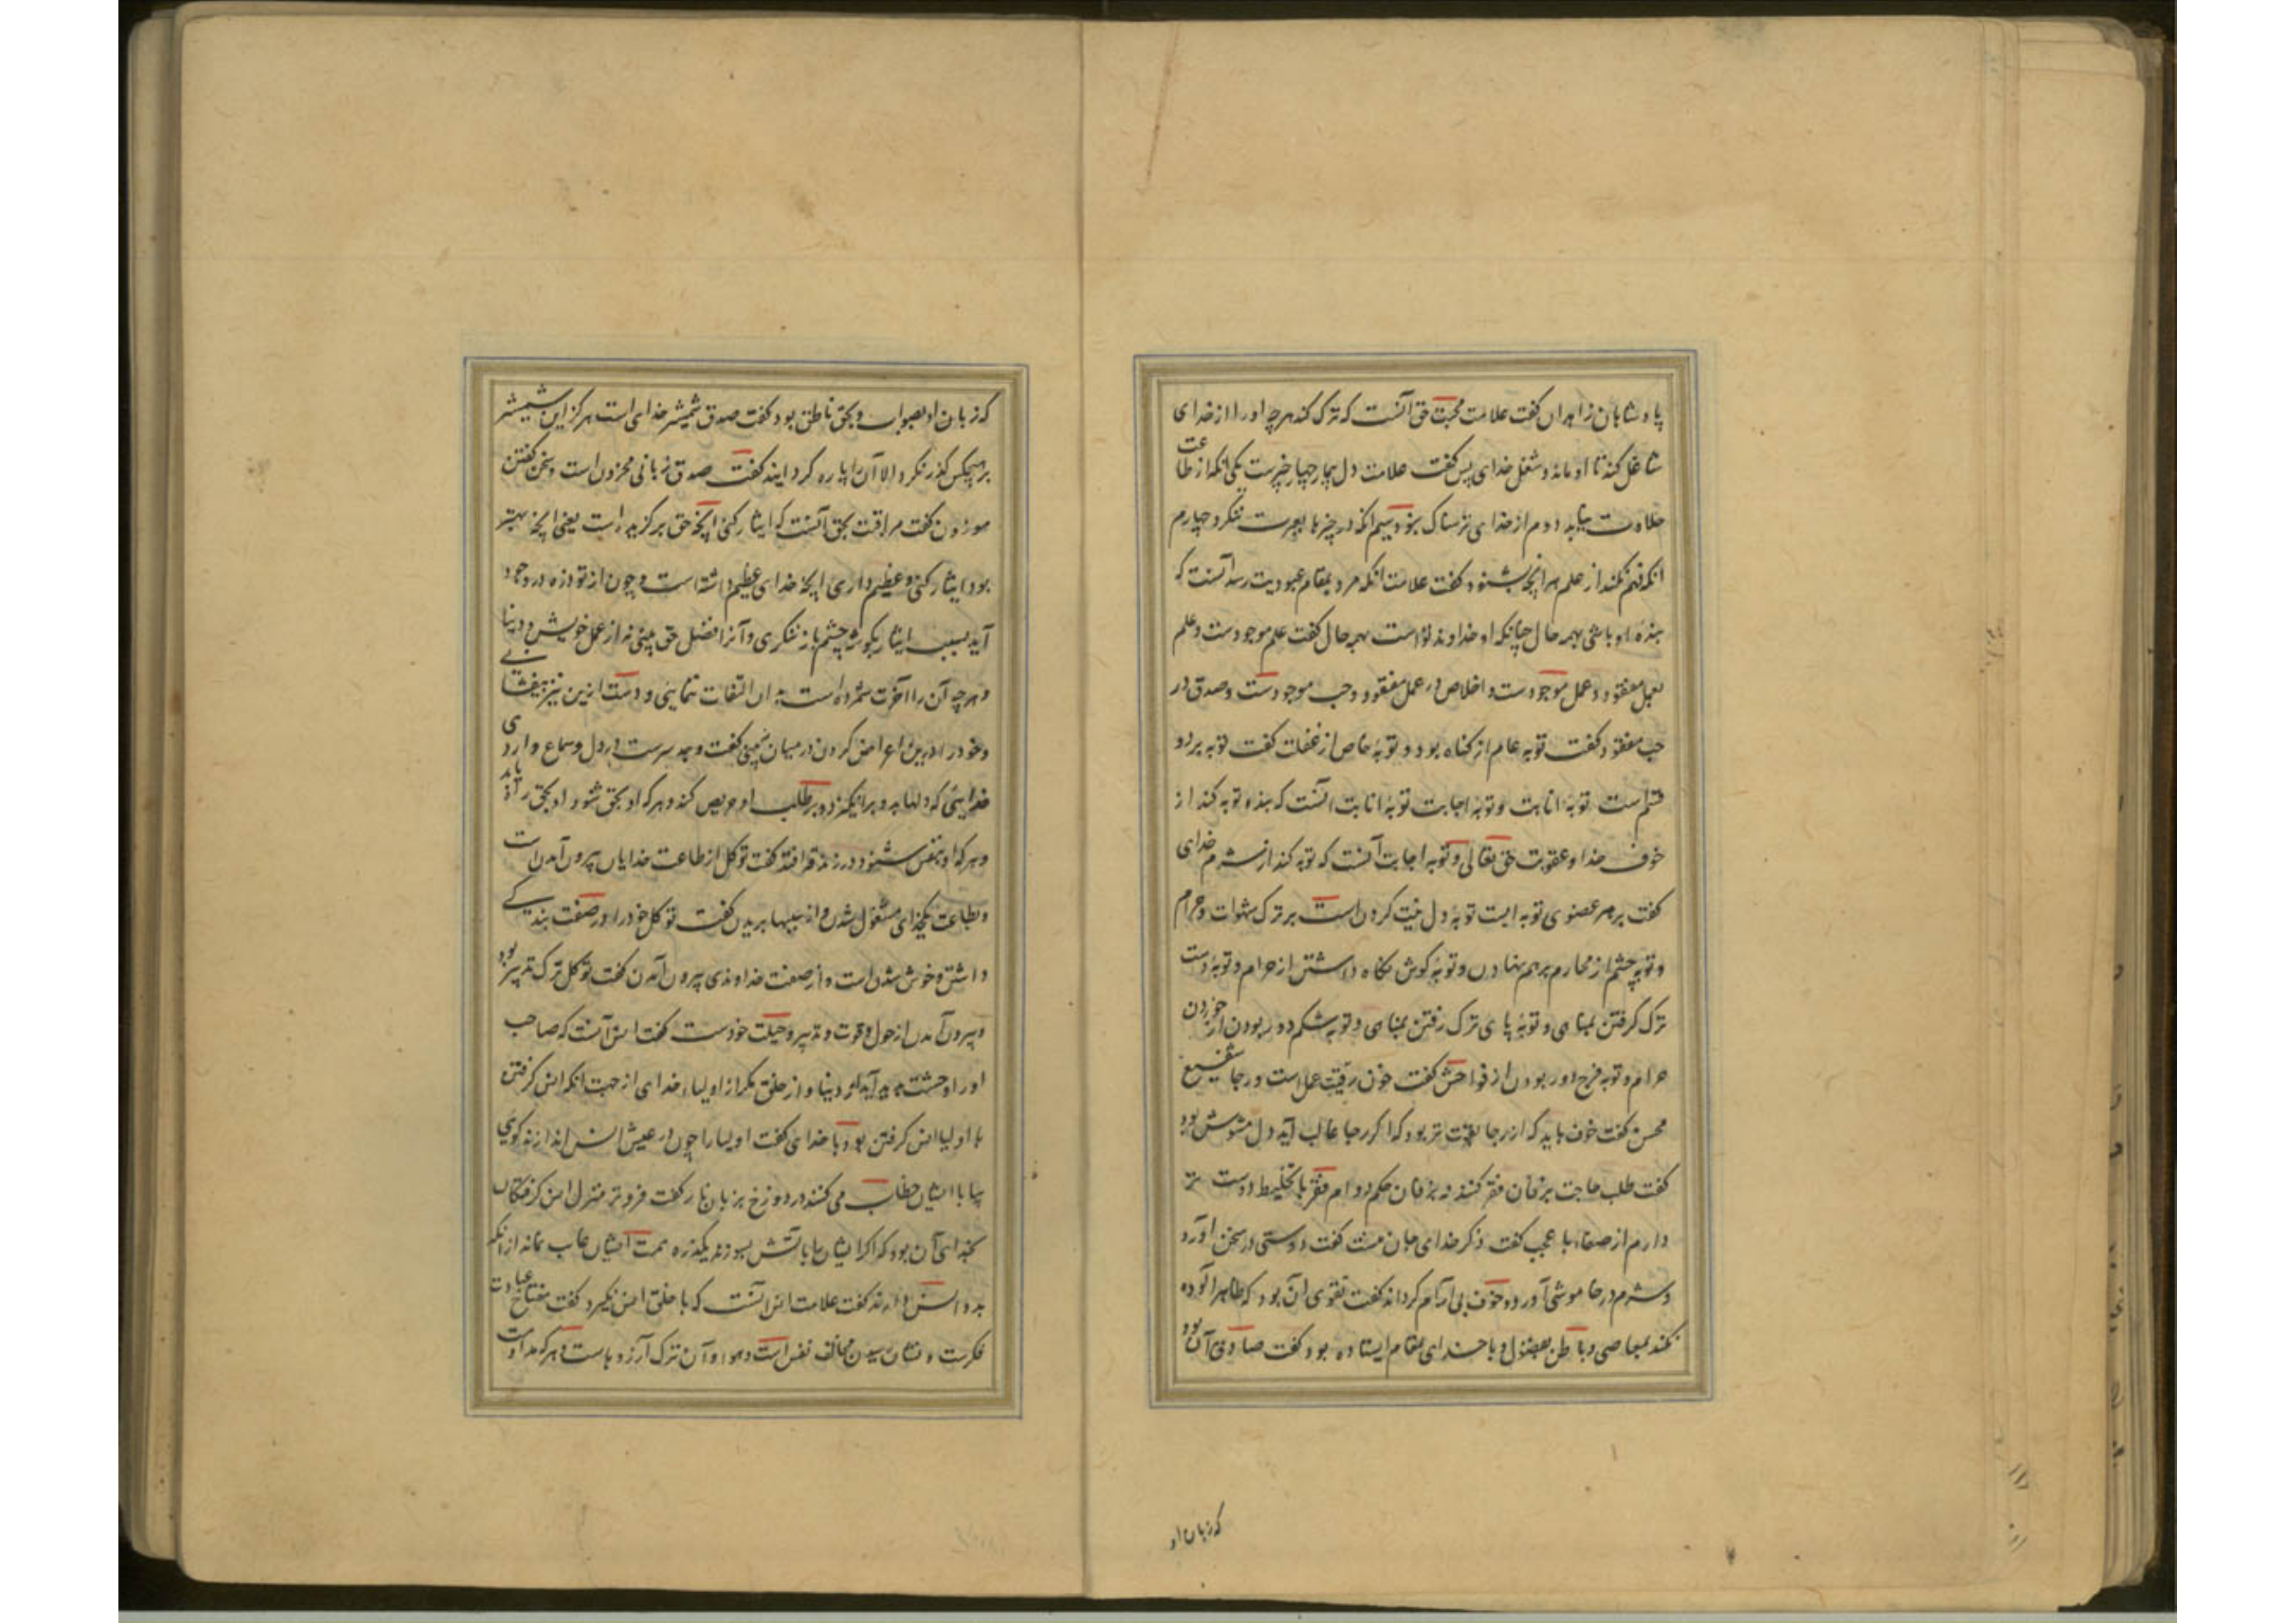 پادشاهان زاهدان کفت علامت محبت حق آنست که ترک کند هرچه او را از خدای
شاغل کند تا او ماند و شغل خدای پس کفت علامت دل بیمار چهار چیزست یکی انکه از طاعت
حلاوت نیابد دوم از خدای ترسناک نبود سیم انکه در چیزها بعبرت ننکرد چهارم
انکه فهم نکند از علم هرانچه بشنود کفت علامت انکه مرد بمقام عبودیت رسد آنست که
بنده او باشی بهمه حال چنانکه او خداوند تواست بهمه حال کفت علم موجودست و علم
بعمل مفقود و عمل موجودست و اخلاص در عمل مفقود و حب موجودست و صدق در
حب مفقود کفت توبه عام از کناه بود و توبهٔ خاص از غفلت کفت توبه بر دو
قسم است توبهٔ انابت و توبهٔ اجابت توبهٔ انابت آنست که بنده توبه کند از
خوف خدا و عقوبت حق تعالی و توبه اجابت آنست که توبه کند از شرم خدای
کفت بر هر عضوی توبه ایست توبهٔ دل نیت کردن است بر ترک شهوات و حرام
و توبه چشم از محارم برهم نهادن و توبهٔ کوش نکاه داشتن از حرام و توبهٔ دست
ترک کرفتن بمناهی و توبهٔ پای ترک رفتن بمناهی و توبه شکم دور بودن از خوردن
حرام و توبه فرج دور بودن از فواحش کفت خوف رقیب عمل است و رجا شفیع
محسن کفت خوف باید که از رجا بقوت تر بود که اکر رجا غالب آید دل مشوش بود
کفت طلب حاجت بزفان فقر کنند نه بزفان حکم دوام فقر با تخلیط دوست تر
دارم از صفاء با عجب کفت ذکر خدای جان منست کفت دوستی در سخن آورد
و شرم در خاموشی آورد و خوف بی آرام کرداند کفت تقوی آن بود که ظاهر آلوده
نکند بمعاصی و باطن بفضول و با خدای بمقام ایستاده بود کفت صادق آن بود
که زبان او
که زبان او بصواب و بحق ناطق بود کفت صدق شمشیر خدای است هرکز این شمشیر
بر هیچکس کذر نکرد الا آن را پاره کردانید کفت صدق زبانی محزون است و سخن کفتن
موزون کفت مراقبت بحق آنست که ایثار کنی انچه حق برکزیده است یعنی انچه بهتر
بود ایثار کنی و عظیم داری انچه خدای عظیم داشته است و چون از تو ذره در وجود
آید بسبب ایثار بکوشه چشم باز ننکری و آنرا فضل حق بینی نه از عمل خویش و دنیا
و هرچه آن را آخرت شمرده است بدان التفات ننمایی و دست ازین نیز بیفشانی
و خود را درین اعراض کردن در میان نبینی کفت وجد سریست در دل و سماع واردی
خداییئ که دلها بدو برانکیزد و بر طلب او حریص کند و هرکه او بحق شنود او بحق راه یابد
و هرکه او بنفس شنود در زندقه افتد کفت توکل از طاعت خدایان بیرون آمدن است
و بطاعت یکخدای مشغول شدن و از سببها بریدن کفت توکل خود را در صفت بندکی
داشتن و خوش شدن است و از صفت خداوندی بیرون آمدن کفت توکل ترک تدبیر بود
و بیرون آمدن از حول و قوت و تدبیر و حیلت خودست کفت انس آنست که صاحب
او را وحشت آید از دنیا و از خلق مکر از اولیاء خدای از جهت انکه انس کرفتن
با اولیا انس کرفتن بود با خدای کفت اولیا را چون در عیش انس اندازند کویی
بیا با ایشان خطاب می کنند در دوزخ بزبان نار کفت فروتر منزل انس کرفتکان
بخدای آن بود که اکر ایشان را بآتش بسوزند یکذره همت ایشان غایب نماند از انکه
بدو انس دارند کفت علامت انس آنست که با خلق انس نکیرد کفت مفتاح عبادت
فکرست و نشان رسیدن مخالفت نفس است و هوا و آن ترک آرزوهاست و هرکه مداومت